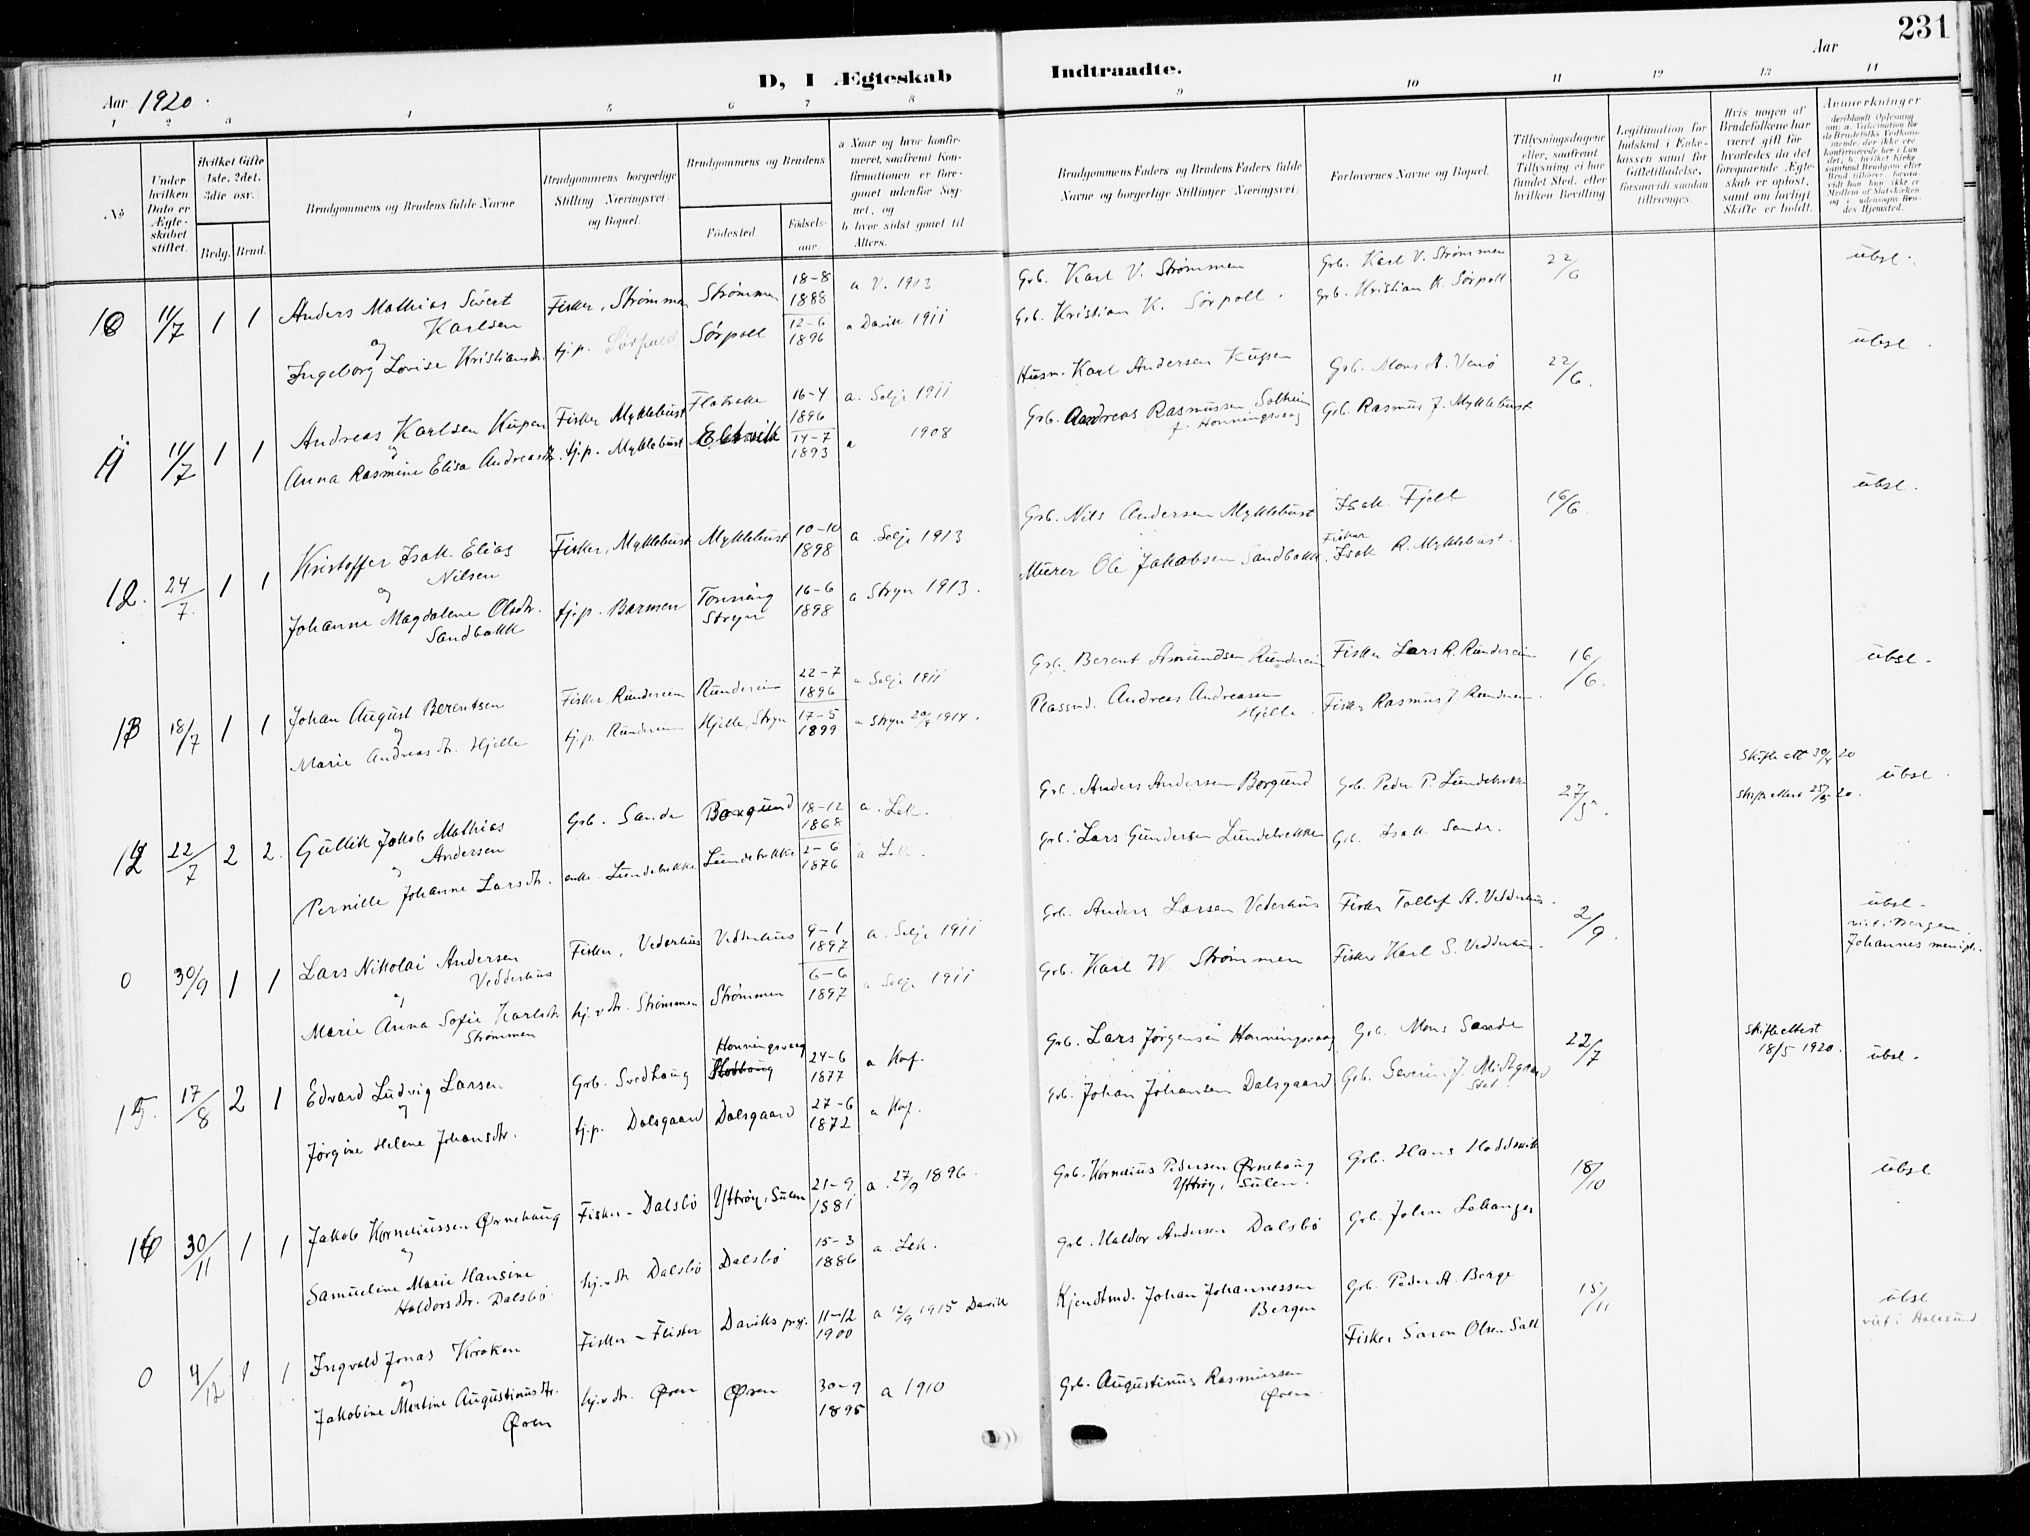 231
D, I Ægteskab Indtraadte.
Aar 1920. Aar
1 2 3 4 5 6 7 8 9 10 11 12 13 14
No
Under hvilken Dato er Ægteskabet stiftet.
Hvilket Gifte 1ste, 2det, 3die osv.
Brdg. Brud.
Brudgommens og Brudens fulde Navne
Brudgommens borgerlige Stilling Næringsvei og Bopæl.
Brudgommens og Brudens
Fødested
Fødselsaar.
a Naar og hvor konfirmeret, saafremt Konfirmationen er foregaaet udenfor Sognet, og
b hvor sidst gaaet til Alters.
Brudgommens Faders og Brudens Faders fulde Navne og borgerlige Stillinger Næringsvei.
Forlovernes Navne og Bopæl.
Tillysningsdagene eller, saafremt Tillysning ei har fundet Sted, efter hvilken Bevilling
Legitimation for Indskud i Enkekassen samt for Giftetilladelse, forsaavidt saadan tiltrænges.
Hvis nogen af Brudefolkene har været gift før hvorledes da det foregaaende Ægteskab er opløst, samt om lovligt Skifte er holdt.
Anmerkninger
10 11/7 1 1 Anders Mathias Sivert Karlsen Fisker, Strømmen Strømmen 18-8 1888 a V. 1903 Grb. Karl V. Strømmen Grb. Karl V. Strømmen 22/6 übsl.
og
Ingeborg Lovise Kristiansdtr. tj.p. Sørpoll Sørpoll 12-6 1896 a Davik 1911 Grb. Kristian K. Sørpoll. Grb. Kristian K. Sørpoll
11 11/7 1 1 Andreas Karlsen Kupen Fisker Myklebust Flatrake 16-4 1896 a. Selje 1911 Husm. Karl Andersen Kupen Grb. Mons A. Venø 22/6. übsl.
og
Anna Rasmine Elisa Andreasdtr. tj.p. Myklebust 14-7 1893 a 1908 Grb. Andreas Rasmussen Solheim f. Honningsvaag Grb. Rasmus J. Myklebust
12. 24/7. 1 1 Kristoffer Isak Elias Nilsen Fisker, Myklebust Myklebust 10-10 1898 a Selje 1913 Grb. Nils Andersen Myklebust Isak Fjell 16/6. übsl.
og
Johanne Magdalene Olsdtr. Sandbakk tj.p. Barmen Tonning Stryn 16-6 1898 a Stryn 1913. Murer Ole Jakobsen Sandbakk Fisker Isak R. Myklebust.
13 18/7 1 1 Johan August Berentsen Fisker Rundereim Rundereim 22-7 1896 a Selje 1911 Grb. Berent Asmundsen Rundereim Fisker Lars R. Rundereim 16/6. übsl.
og
Marie Andreasdtr. Hjelle tj.p Rundereim Hjelle, Stryn 17-5 1899 a Stryn 20/9 1914. Plassmd. Andreas Andreassen Hjelle. Fisker Rasmus J. Rundereim.
14 22/7 2 2. Gullik Jakob Mathias Andersen Grb. Sande Borgund 18-12 1868 a. Lek. Grb. Anders Andersen Borgund Grb. Peder P. Lundebrekke 27/5. übsl.
og
Pernille Johanne Larsdtr. enke. Lundebrekke Lundebrekke 2-6 1876 a Lek. Grb. Lars Gundersen Lundebrekke Grb. Isak Sande.
0 30/9 1 1 Lars Nikolai Andersen Vedderhus Fisker, Vederhus Vedderhus 9-1 1897 a. Selje 1911 Grb. Anders Larsen Vederhus Fisker Tollef A. Vedderhus. 2/9. übsl. viet i Bergen. Johannes menigh.
og
Marie Anna Sofie Karlsdtr Strømmen hj.v.dtr. Strømmen Strømmen 6-6 1897 a Selje 1911 Grb. Karl W. Strømmen Fisker Karl S. Vedderhus.
15. 17/8 2 1 Edvard Ludvig Larsen Grb. Svedhaug Honningsvaag 24-6 1877 a Hof. Grb. Lars Jørgensen Honningsvaag Grb. Mons Sande 22/7 Skifteattest 18/5 1920. übsl.
og
Jørgine Helene Johansdtr. tj.p. Dalsgaard Dalsgaard 27-6 1872 a Hof. Grb. Johan Johansen Dalsgaard Grb. Severin J. Midtgaard
16 30/11 1 1 Jakob Korneliussen Ørnehaug Fisker - Dalsbö Yttröy, Sulen 21-9 1881 a. 27/9 1896. Grb. Kornelius Pedersen Ørnehaug Yttröy, Sulen. Grb. Hans Hoddevik 18/10 übsl
og
Samueline Marie Hansine Haldorsdtr. Dalsbö. hj.v.dtr Dalsbö Dalsbö 15-3 1886 a. Lek. Grb. Haldor Andersen Dalsbö Grb. John Lekanger
0 4/12 1 1 Ingvald Jonas Kroken Fisker - Flister Daviks prgj. 11-12 1900 a 12/9 1915 Davik Kjendtmd. Johan Johannessen Bergen Grb. Peder A. Berge 15/11 übsl viet i Aalesund
og
Jakobine Martine Augustinusdtr. Øren hj.v.dtr. Øren Øren 30-9 1895 a 1910 Grb. Augustinus Rasmussen Øren. Fisker Saron Olsen Salt